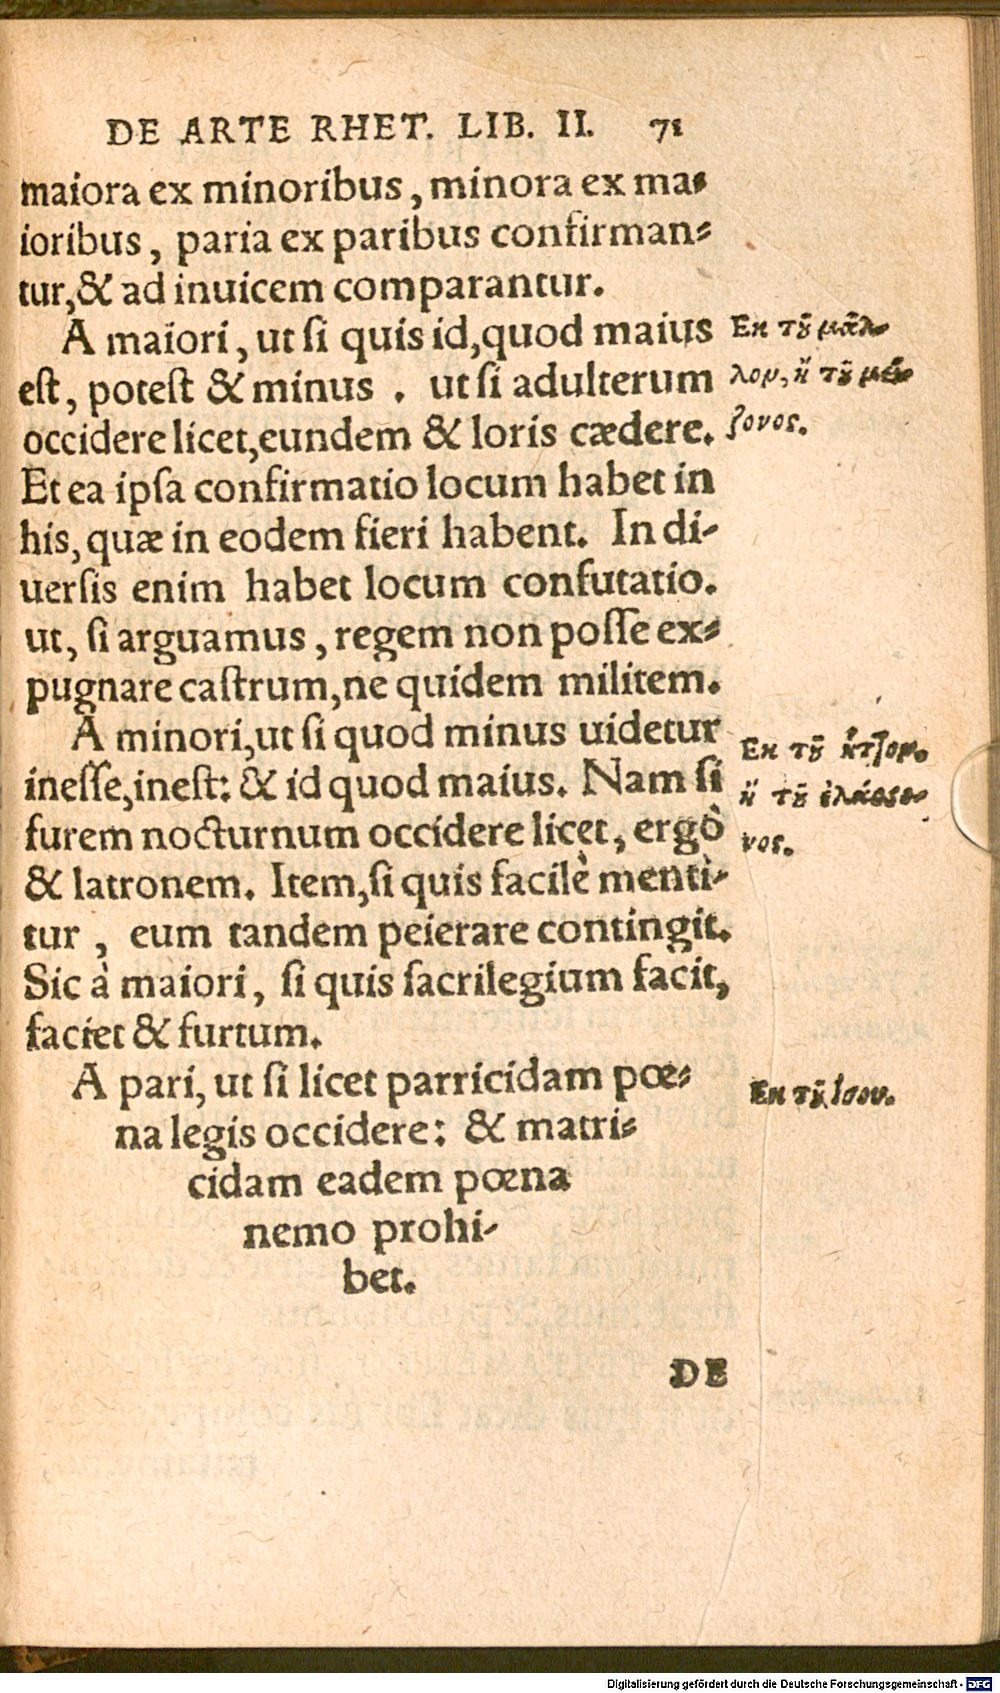 DE ARTE RHET. LIB. II. 71
maiora ex minoribus, minora ex ma-
ioribus, paria ex paribus confirman-
tur, & ad inuicem comparantur.
A maiori, ut si quis id, quod maius
est, potest & minus. ut si adulterum
occidere licet, eundem & loris cædere.
Et ea ipsa confirmatio locum habet in
his, quæ in eodem fieri habent. In di-
uersis enim habet locum confutatio.
ut, si arguamus, regem non posse ex-
pugnare castrum, ne quidem militem.
A minori, ut si quod minus uidetur
inesse, inest: & id quod maius. Nam si
furem nocturnum occidere licet, ergò
& latronem. Item, si quis facilè menti-
tur, eum tandem peierare contingit.
Sic à maiori, si quis sacrilegium facit,
faciet & furtum.
A pari, ut si licet parricidam pœ-
na legis occidere: & matri-
cidam eadem pœna
nemo prohi-
bet.
DE
Ἐκ τοῦ μᾶλ-
λον, ἢ τοῦ μεί-
ζονος.
Ἐκ τοῦ ἧττον.
ἢ τοῦ ἐλάσσο-
νος.
Ἐκ τοῦ ἴσου.
Digitalisierung gefördert durch die Deutsche Forschungsgemeinschaft - DFG